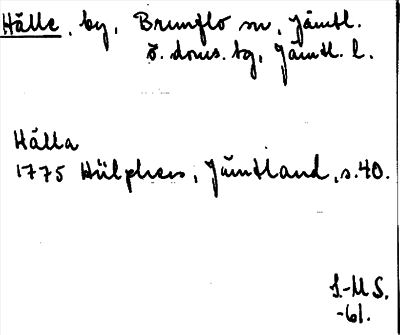 Hälle, by, Brunflo sn, Jämtl.
ö. doms. tg, Jämtl. l.
Hälla
1775 Hülphers, Jämtland, s. 40.
I-M S.
-61.